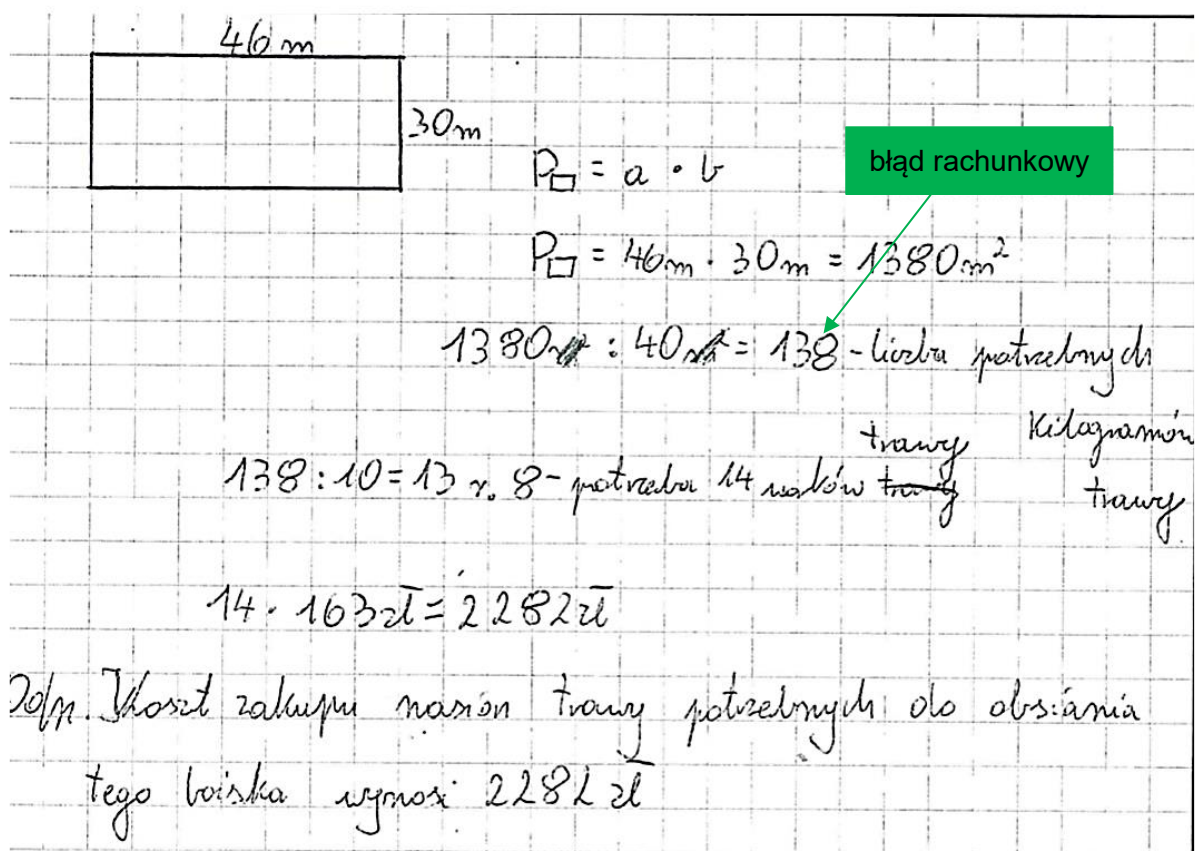 46 m
30m
P▭ = a · b
błąd rachunkowy
P▭ = 46m · 30m = 1380m²
1380 : 40 = 138 - liczba potrzebnych
kilogramów
trawy
138 : 10 = 13 r. 8 - potrzeba 14 worków trawy
14 · 163zł = 2282zł
Odp. Koszt zakupu nasion trawy potrzebnych do obsiania
tego boiska wynosi 2282 zł